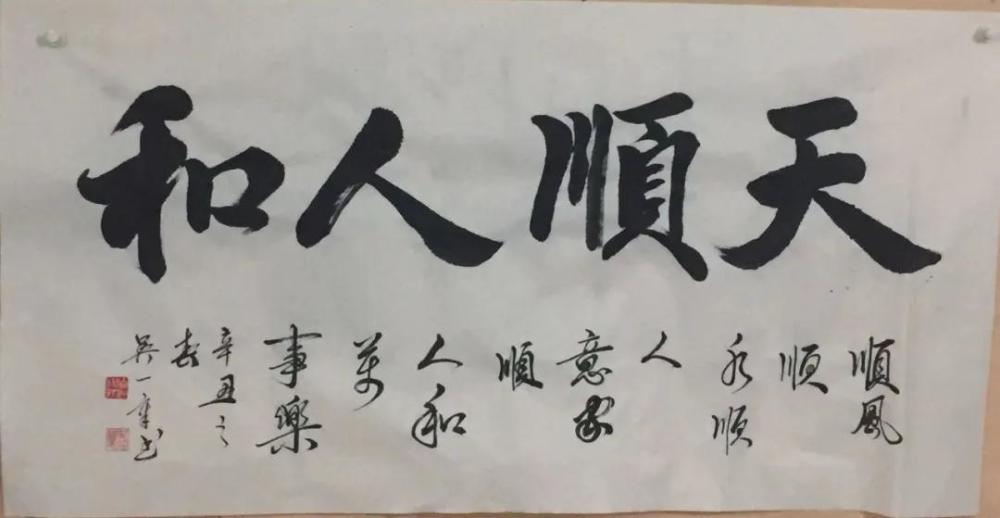 天順人和
順風
順
水順
人
意家
順
人和
萬
事樂
辛丑之
春
吴一書